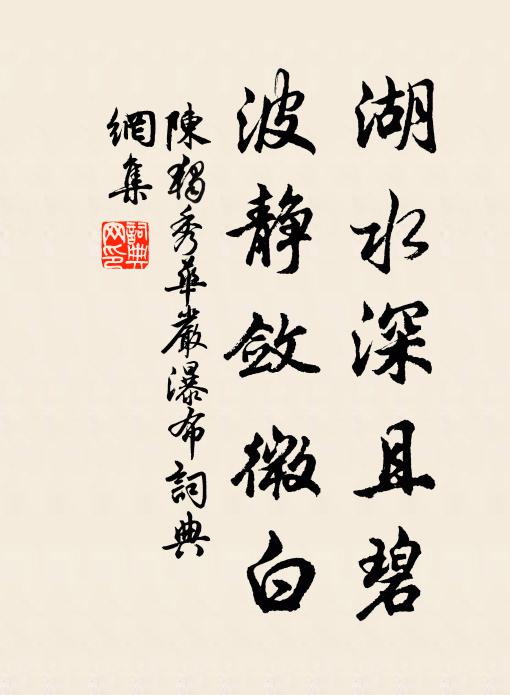 湖水深且碧
波静斂微白
陳獨秀華嚴瀑布詞典
網集
詞典
网印